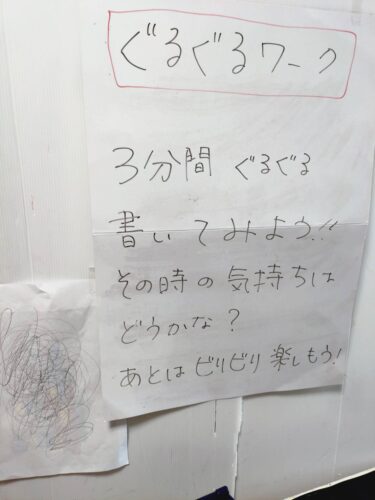 ぐるぐるワーク
3分間 ぐるぐる
書いてみよう!!
その時の気持ちは
どうかな?
あとはビリビリ楽しもう!